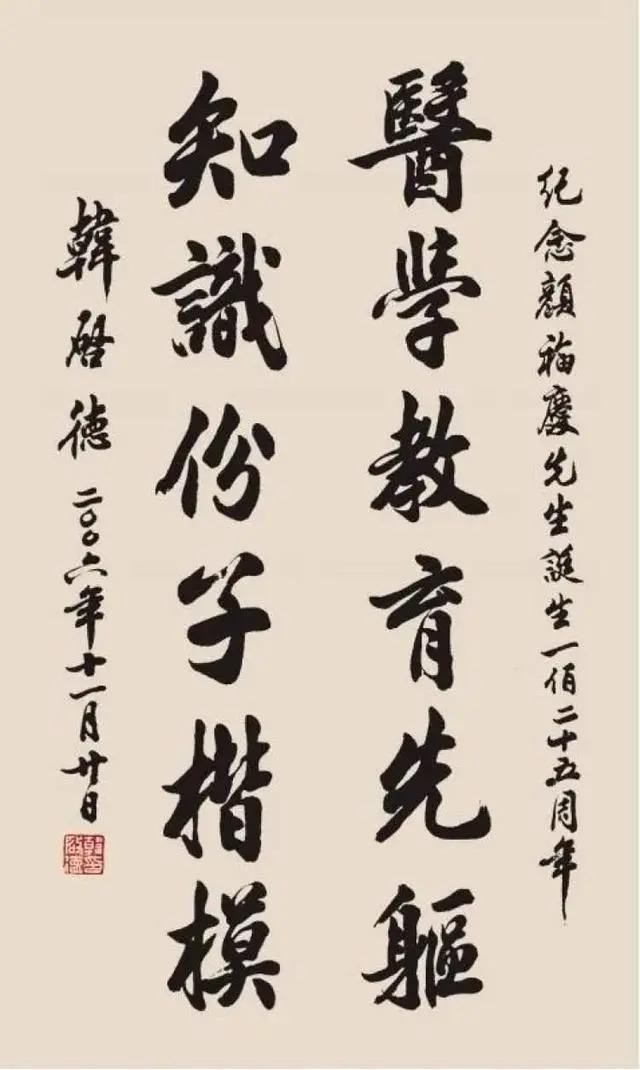 紀念顏福慶先生誕生一佰二十五周年
醫學教育先軀
知識份子楷模
韓啓德 二〇〇六年十一月廿日
韓啓德